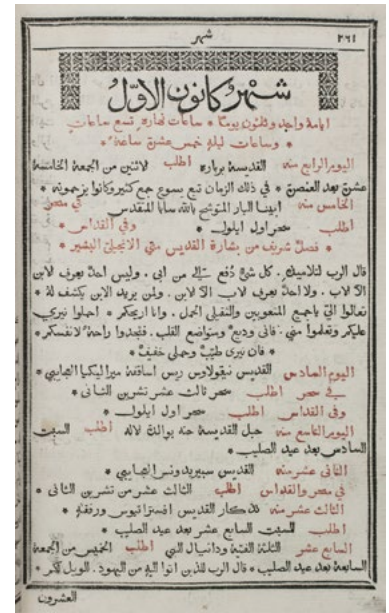 ٢٦١ شهر
شهر كانون الاول
ايامه واحد وثلثون يومًا * ساعات نهاره تسع ساعات
* وساعات ليله خمس عشرة ساعة *
اليوم الرابع منه القديسة برباره اطلب لاثنين من الجمعة الخامسة
عشرة بعد العنصرة * في ذلك الزمان تبع يسوع جمع كثير وكانوا يزحمونه *
الخامس منه ابينا البار المتوشح بالله سابا المتقدس في سحر
اطلب سحر اول ايلول * وفي القداس *
* فصل شريف من بشارة القديس متي الانجيلي البشير *
قال الرب لتلاميذه . كل شي دُفع الي من ابي . وليس احد يعرف الابن
الا الاب . ولا احد يعرف الاب الا الابن . ولمن يريد الابن يكشف له *
تعالوا الي يا جميع المتعوبين والثقيلي الحمل . وانا اريحكم * احملوا نيري
عليكم وتعلموا مني . فاني وديع ومتواضع القلب . فتجدوا راحة لانفسكم *
* فان نيري طيب وحملي خفيف *
اليوم السادس القديس نيقولاوس ريس اساقفة ميرا ليكيا العجايبي *
في سحر اطلب سحر ثالث عشر تشرين الثاني *
وفي القداس اطلب سحر اول ايلول *
اليوم التاسع منه حبل القديسة حنه بوالدة الاله اطلب السبت
السادس بعد عيد الصليب *
الثاني عشر منه القديس سبيريدونس العجايبي *
في سحر والقداس اطلب الثالث عشر من تشرين الثاني *
الثالث عشر منه تذكار القديس افستراتيوس ورفقته *
اطلب للسبت السابع عشر بعد عيد الصليب *
السابع عشر الثلثة الفتية ودانيال النبي اطلب الخميس من الجمعة
السابعة بعد عيد الصليب * قال الرب للذين اتوا اليه من اليهود . الويل لكم *
العشرون